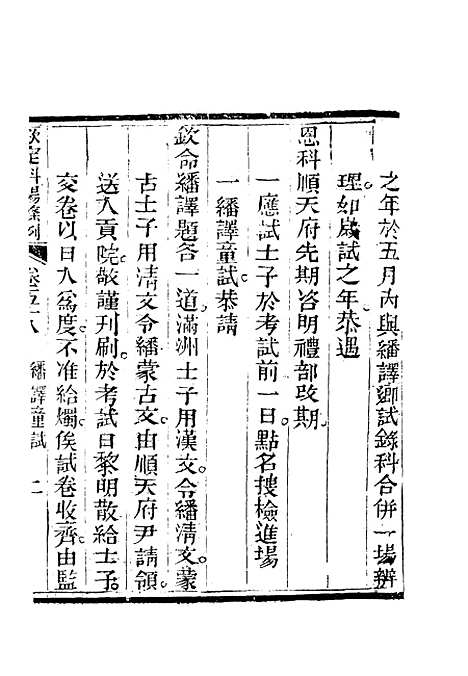 之年於五月內與繙譯鄉試錄科合併一場辦
理如歲試之年恭遇
恩科順天府先期咨明禮部改期
一應試士子於考試前一日點名搜檢進場
一繙譯童試恭請
欽命繙譯題各一道滿洲士子用漢文令繙淸文蒙
古士子用淸文令繙蒙古文由順天府尹請領
送入貢院敬謹刊刷於考試日黎明散給士子
交卷以日入爲度不准給燭俟試卷收齊由監
欽定科場條例 卷五十八 繙譯童試 二